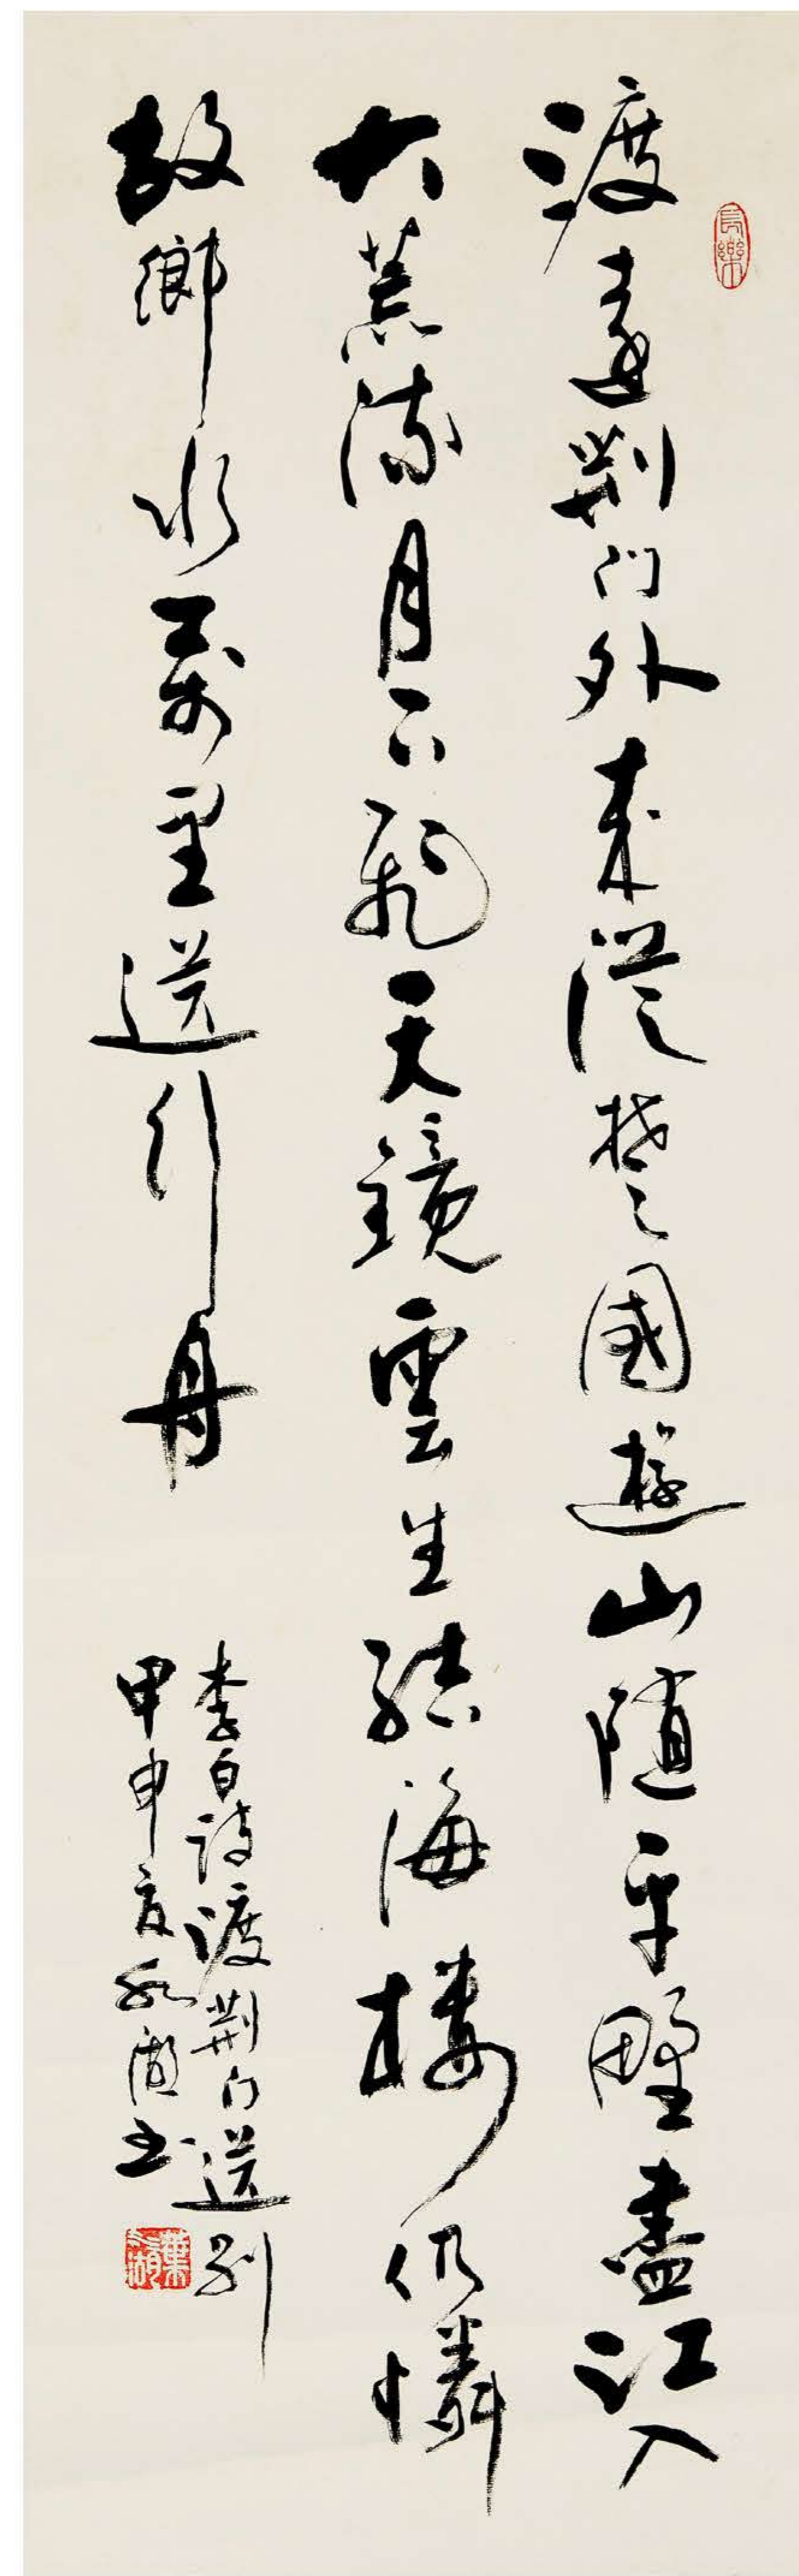 長樂
渡遠荆门外来從楚國遊山随平野盡江入
大荒流月下飛天鏡雲生結海樓仍憐
故鄉水萬里送行舟
李白诗渡荆门送别
甲申夏湖书